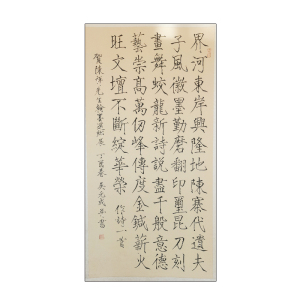 界河東岸興隆地陳寨代遺夫
子風徽墨勤磨翻印璽昆刀刻
畫舞蛟龍新詩說盡千般意德
藝崇高萬仞峰傳度金鍼薪火
旺文壇不斷綻華榮 作詩一首
賀陳 先生翰墨 展 丁酉春 吳元 並書